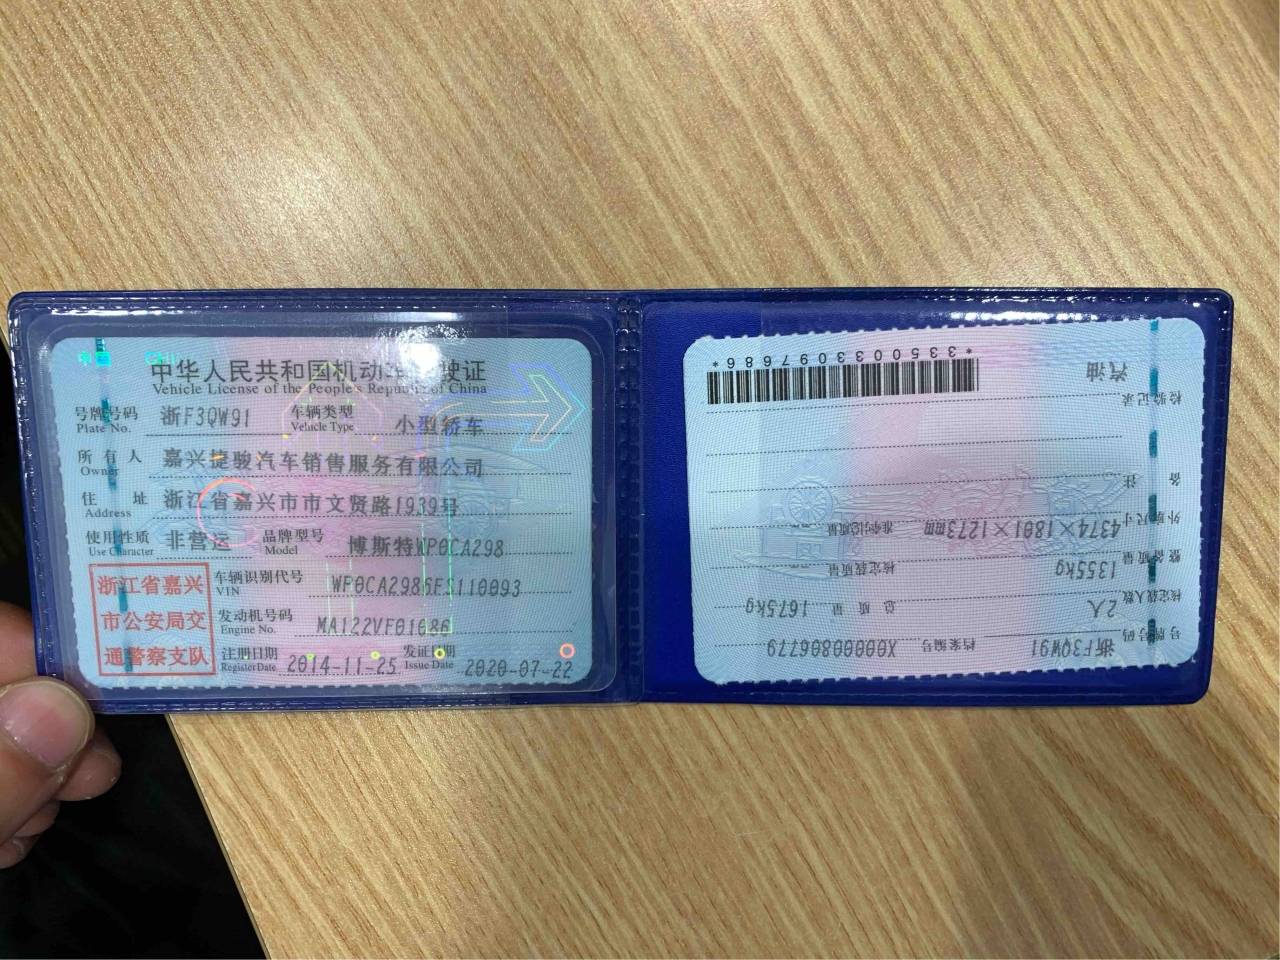 中国 CHI
中华人民共和国机动 驶证
Vehicle License of the People's Republic of China
号牌号码 浙F3QW91 车辆类型 小型轿车
Plate No. Vehicle Type
所有人 嘉兴捷骏汽车销售服务有限公司
Owner
住址 浙江省嘉兴市市文贤路1939号
Address
使用性质 非营运 品牌型号 博斯特WP0CA298
Use Character Model
浙江省嘉兴
市公安局交
通警察支队
车辆识别代号 WP0CA2986FS110093
VIN
发动机号码 MA122VF01086
Engine No.
注册日期 2014-11-25 发证日期 2020-07-22
Register Date Issue Date
号牌号码 浙F3QW91 档案编号 X00000806779
核定载人数 2人 总质量 1675kg
整备质量 1355kg 核定载质量
外廓尺寸 4374×1801×1273mm 准牵引总质量
备注
检验记录
汽油
*3350033097686*